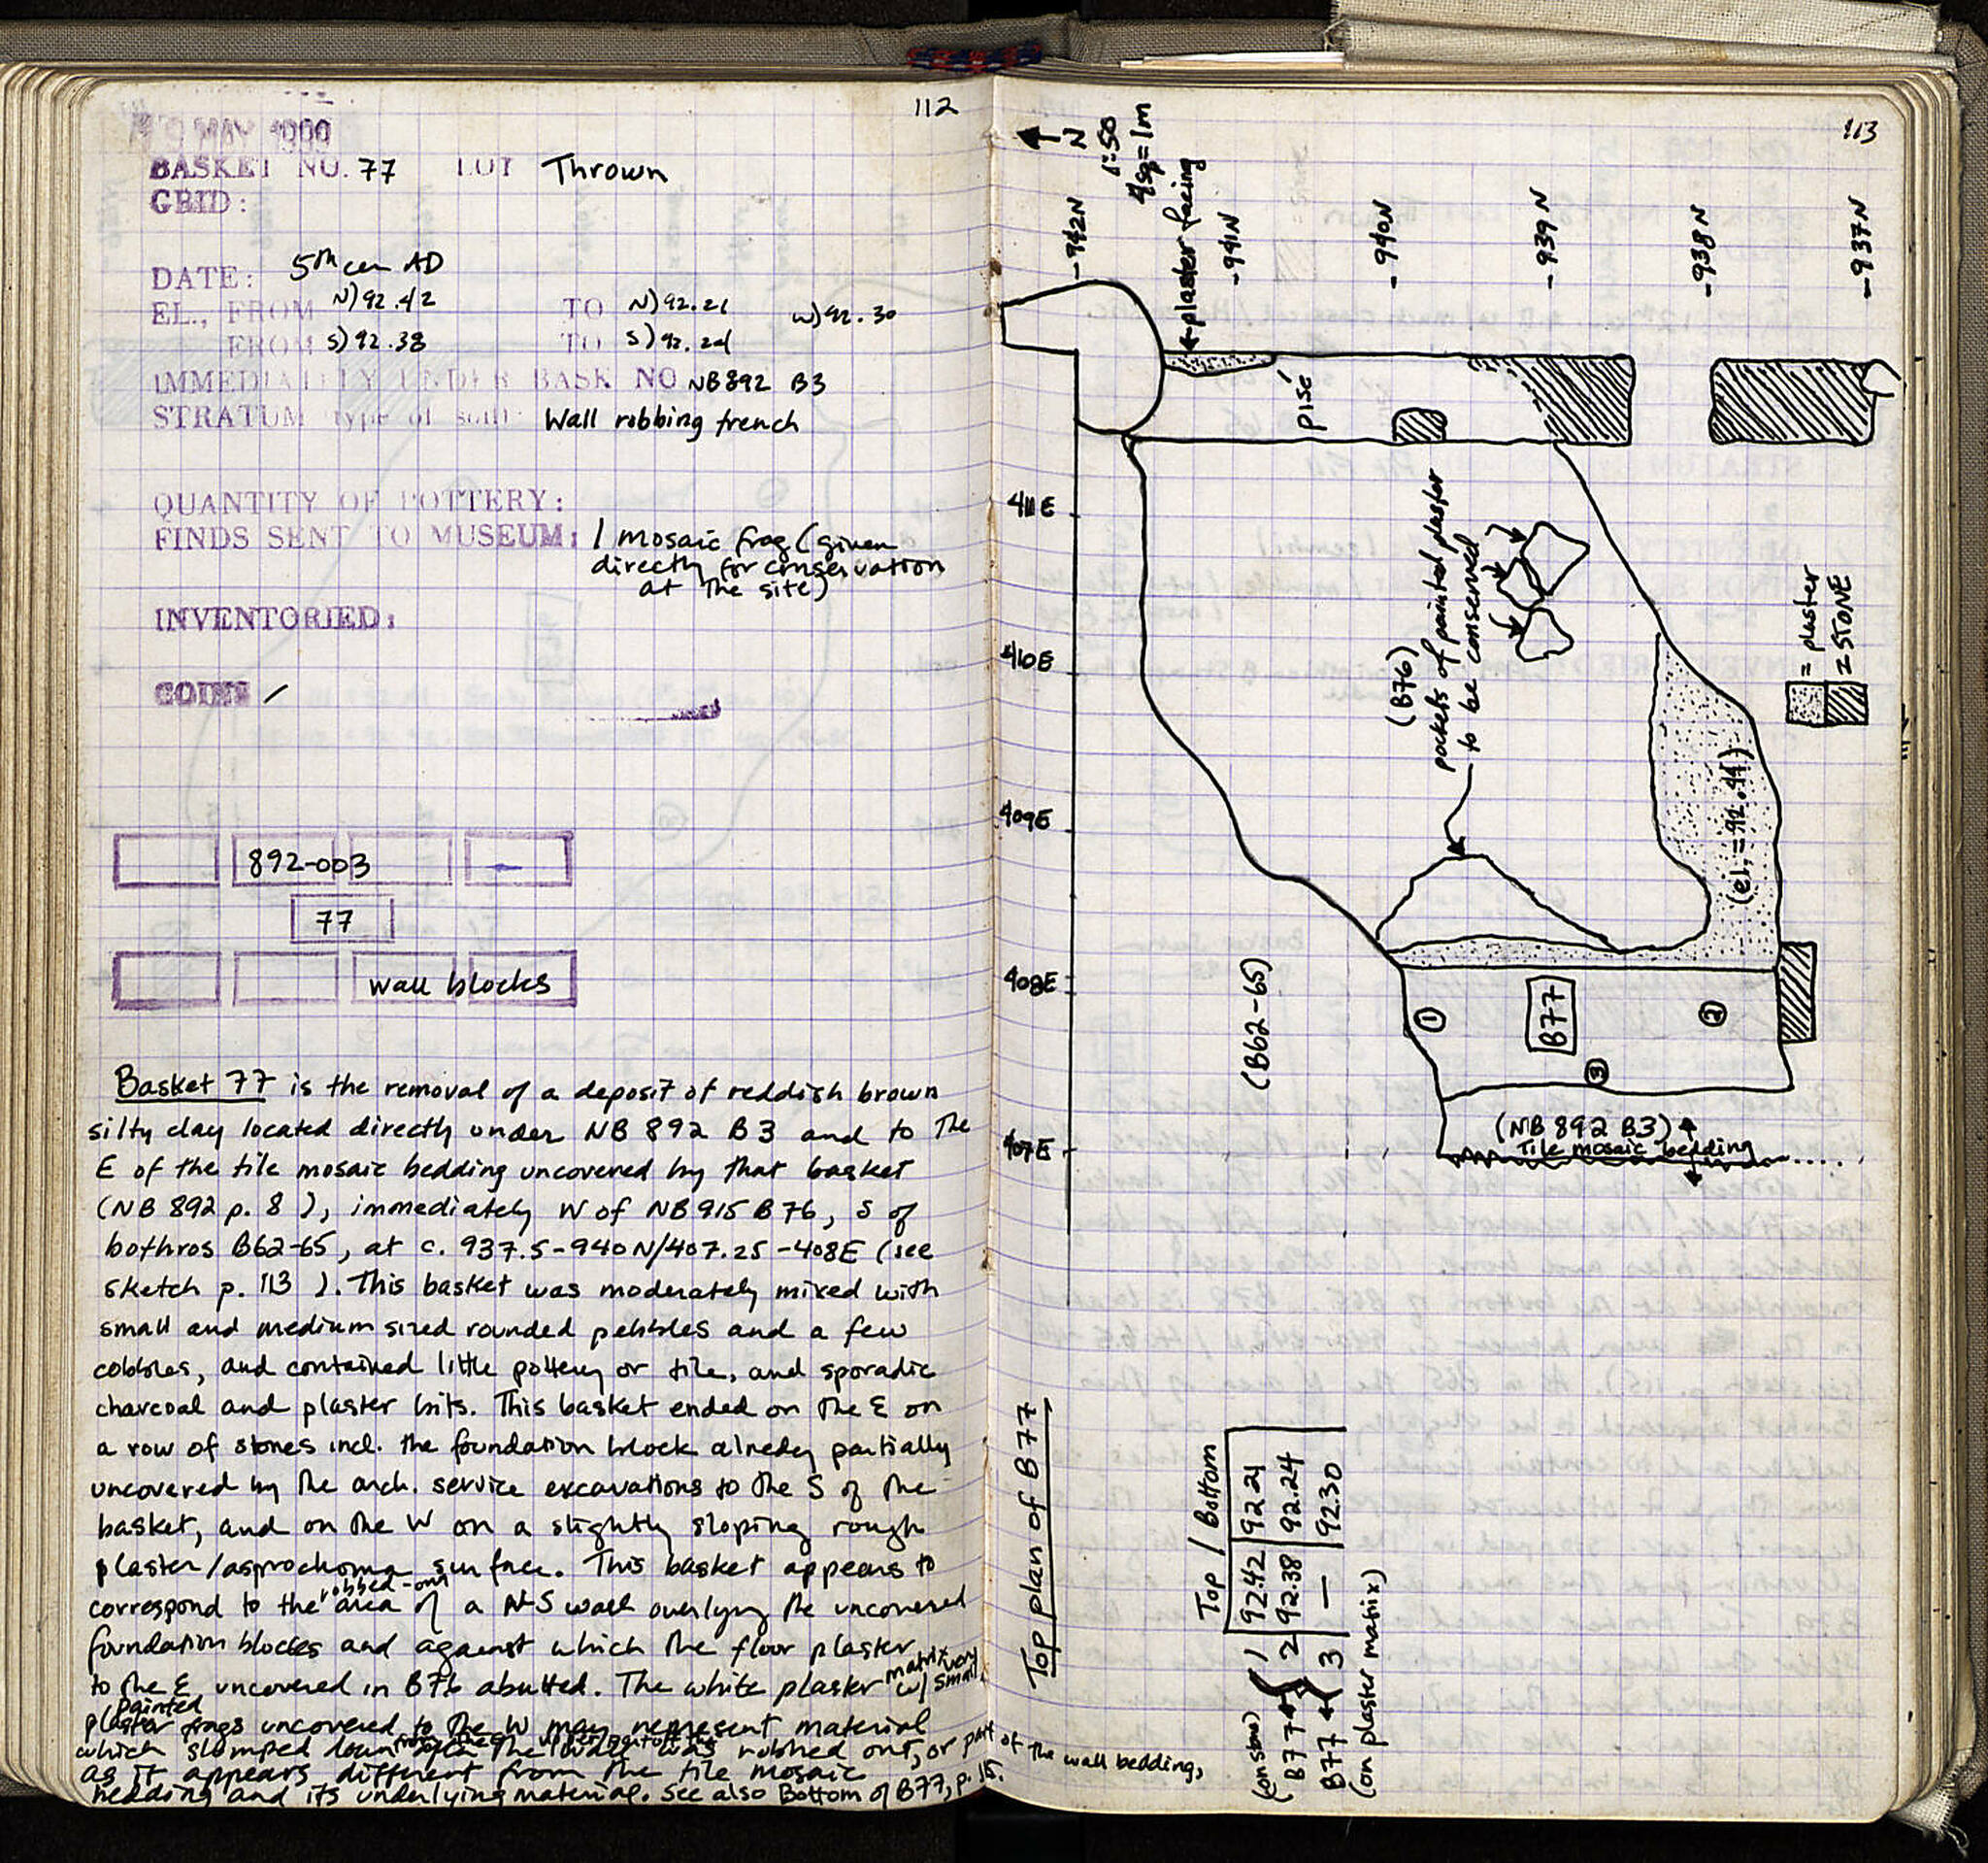 112
MAY
BASKET NO. 77 LOT Thrown
GRID:
DATE: 5th cen AD
EL., FROM N) 92.42 TO N) 92.21 W) 92.30
FROM S) 92.38 TO S) 92.24
IMMEDIATELY UNDER BASK NO NB892 B3
STRATUM type of soil: Wall robbing trench
QUANTITY OF POTTERY:
FINDS SENT TO MUSEUM: 1 mosaic frag (given
directly for conservation
at the site)
INVENTORIED:
COINS /
892-003
77
wall blocks
Basket 77 is the removal of a deposit of reddish brown
silty clay located directly under NB 892 B3 and to the
E of the tile mosaic bedding uncovered by that basket
(NB 892 p. 8 ), immediately W of NB915 B76, S of
bothros B62-65, at c. 937.5-940N/407.25-408E (see
sketch p. 113 ). This basket was moderately mixed with
small and medium sized rounded pebbles and a few
cobbles, and contained little pottery or tile, and sporadic
charcoal and plaster bits. This basket ended on the E on
a row of stones incl. the foundation block alredy partially
uncovered by the arch. service excavations to the S of the
basket, and on the W on a slightly sloping rough
plaster/asprochoma surface. This basket appears to
correspond to the robbed-out area of a N-S wall overlying the uncovered
foundation blocks and against which the floor plaster
to the E uncovered in B76 abutted. The white plaster matrix w/ very small
painted plaster frags uncovered to the W may represent material
which slumped down the wall was robbed out, or part of the wall bedding,
as it appears different from the tile mosaic
bedding and its underlying material. See also Bottom of B77, p. 15.
113
N
1:50
4sq=1m
-942N
plaster facing
-941N
-940N
-939N
-938N
-937N
pisé
411E
410E
409E
408E
407E
(B76)
pockets of painted plaster
to be conserved
= plaster
= STONE
(el. = 92.44)
(B62-65)
1
B77
2
3
(NB 892 B3)
Tile mosaic bedding
Top plan of B77
Top / Bottom
(on stone) B77 1 92.42 92.21
2 92.38 92.24
B77 3 — 92.30
(on plaster matrix)